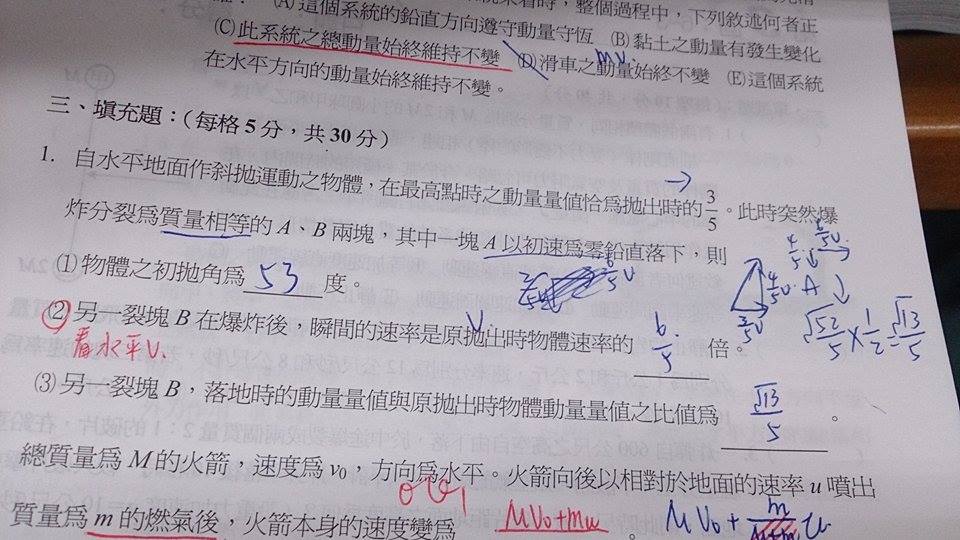 (A) 這個系統的鉛直方向遵守動量守恆 (B) 黏土之動量有發生變化
(C) 此系統之總動量始終維持不變 (D) 滑車之動量始終不變 (E) 這個系統
mv.
在水平方向的動量始終維持不變。
三、填充題:(每格 5 分,共 30 分)
1. 自水平地面作斜拋運動之物體,在最高點時之動量量值恰為拋出時的 3/5。此時突然爆
炸分裂為質量相等的 A、B 兩塊,其中一塊 A 以初速為零鉛直落下,則
(1) 物體之初拋角為 53 度。
6/5 v
4/5 v · A
3/5 v
√52/5 × 1/2 = √13/5
(2) 另一裂塊 B 在爆炸後,瞬間的速率是原拋出時物體速率的 6/5 倍。
v.
看水平 v.
(3) 另一裂塊 B,落地時的動量量值與原拋出時物體動量量值之比值為 √13/5 。
總質量為 M 的火箭,速度為 v₀,方向為水平。火箭向後以相對於地面的速率 u 噴出
質量為 m 的燃氣後,火箭本身的速度變為 Mv₀+mu 。